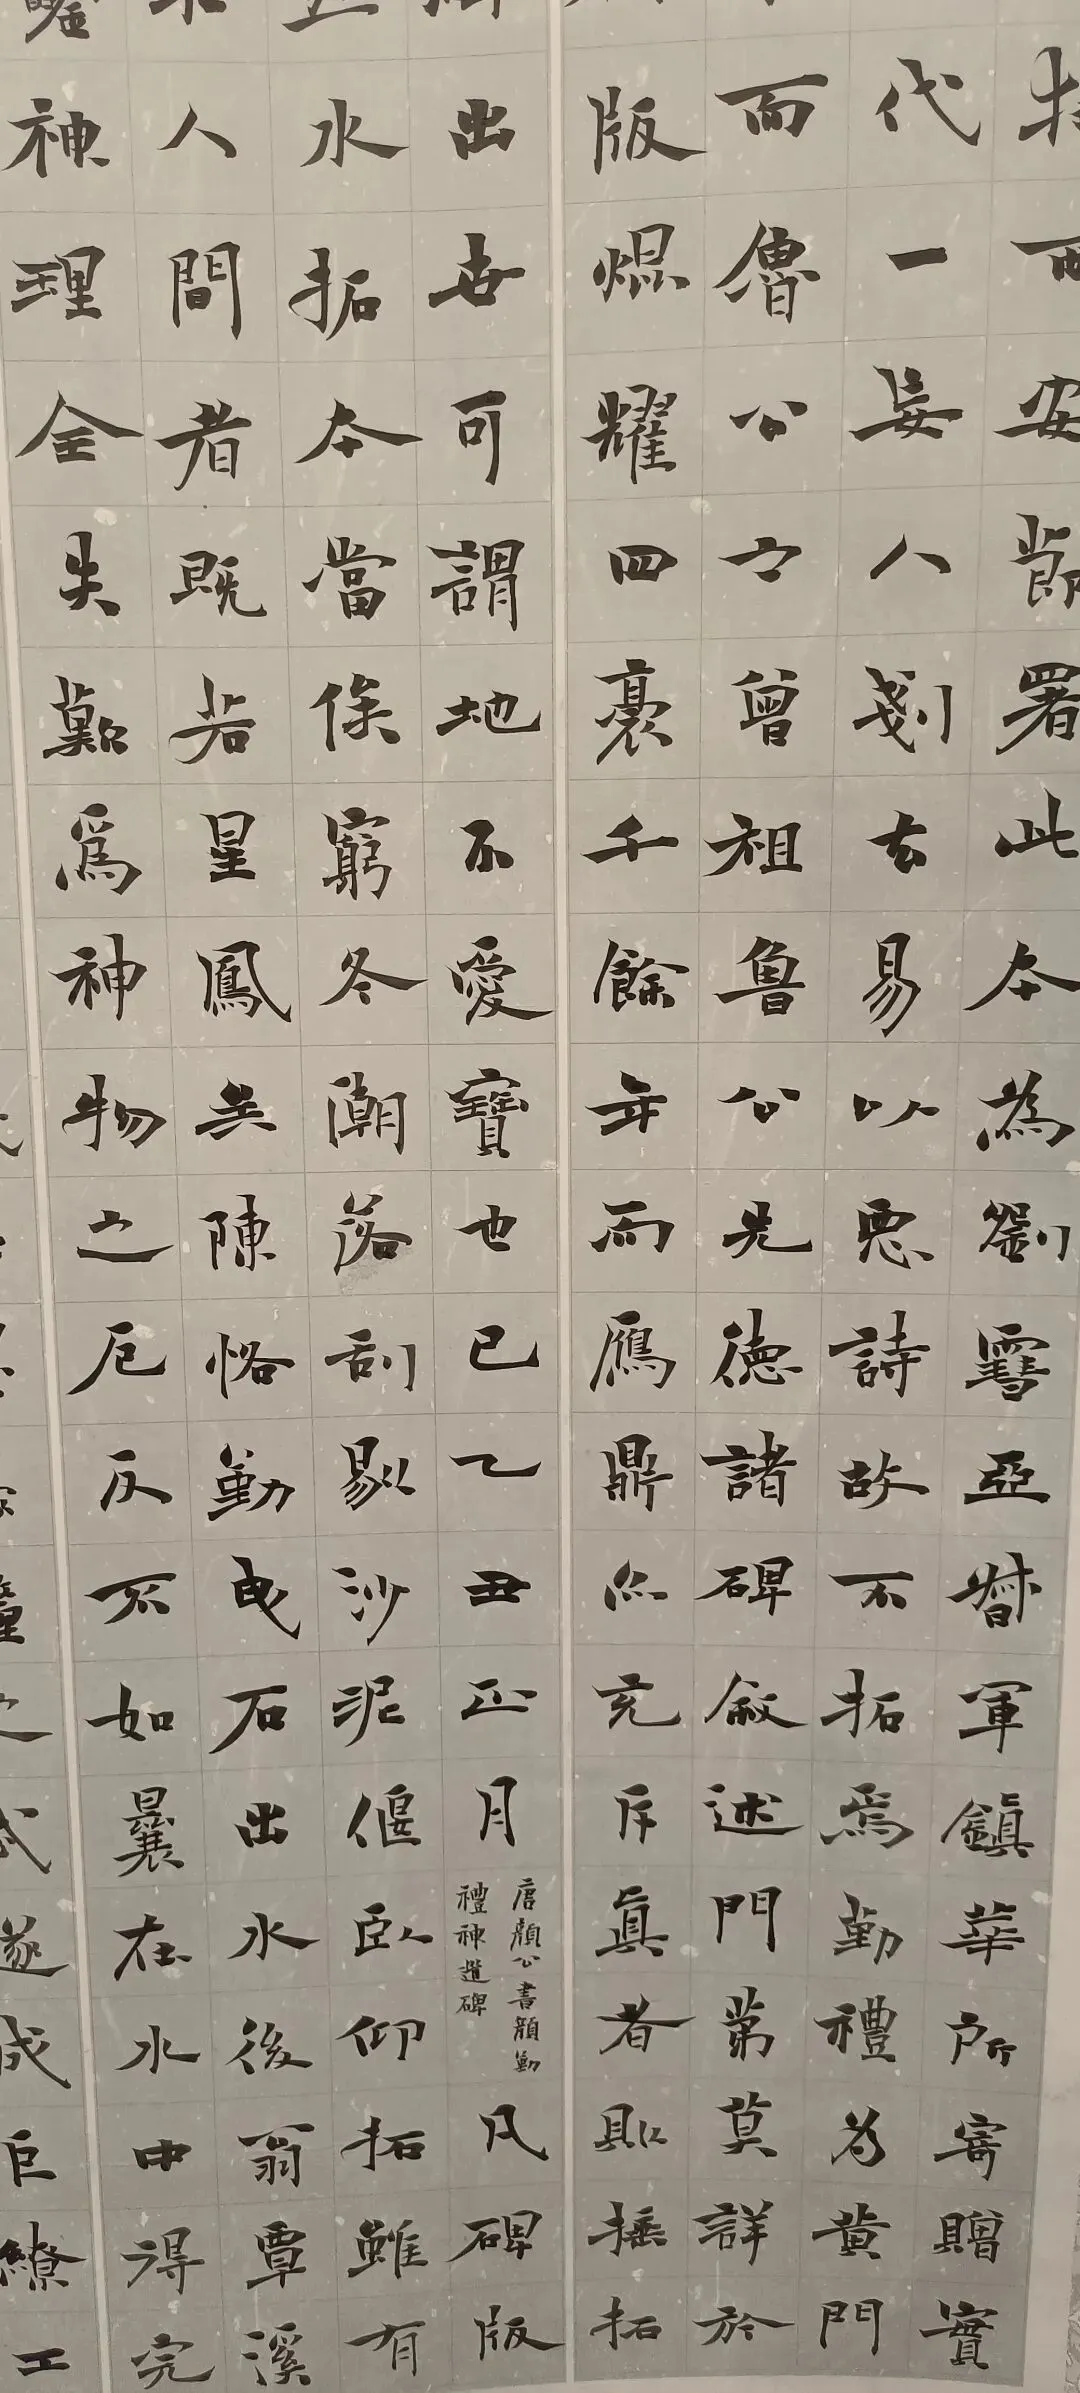 西安衙署此本為劉雪亞督軍鎮華所寄贈實
代一妄人剗去易以惡詩故不拓焉勤禮為黄門
而魯公亡曾祖魯公先德諸碑敘述門第莫詳於
版焜耀四裔千餘年而鴈鼎亦充斥真者則捶拓
出世可謂地不愛寶也已乙丑正月
唐顏公書顏勤
禮神道碑
凡碑版
水拓本當係窮冬潮落刮剔沙泥偃臥仰拓雖有
人間者既若星鳳矣陳恪勤曳石出水後翁覃溪
神理全失歎為神物之厄反不如曩在水中得完